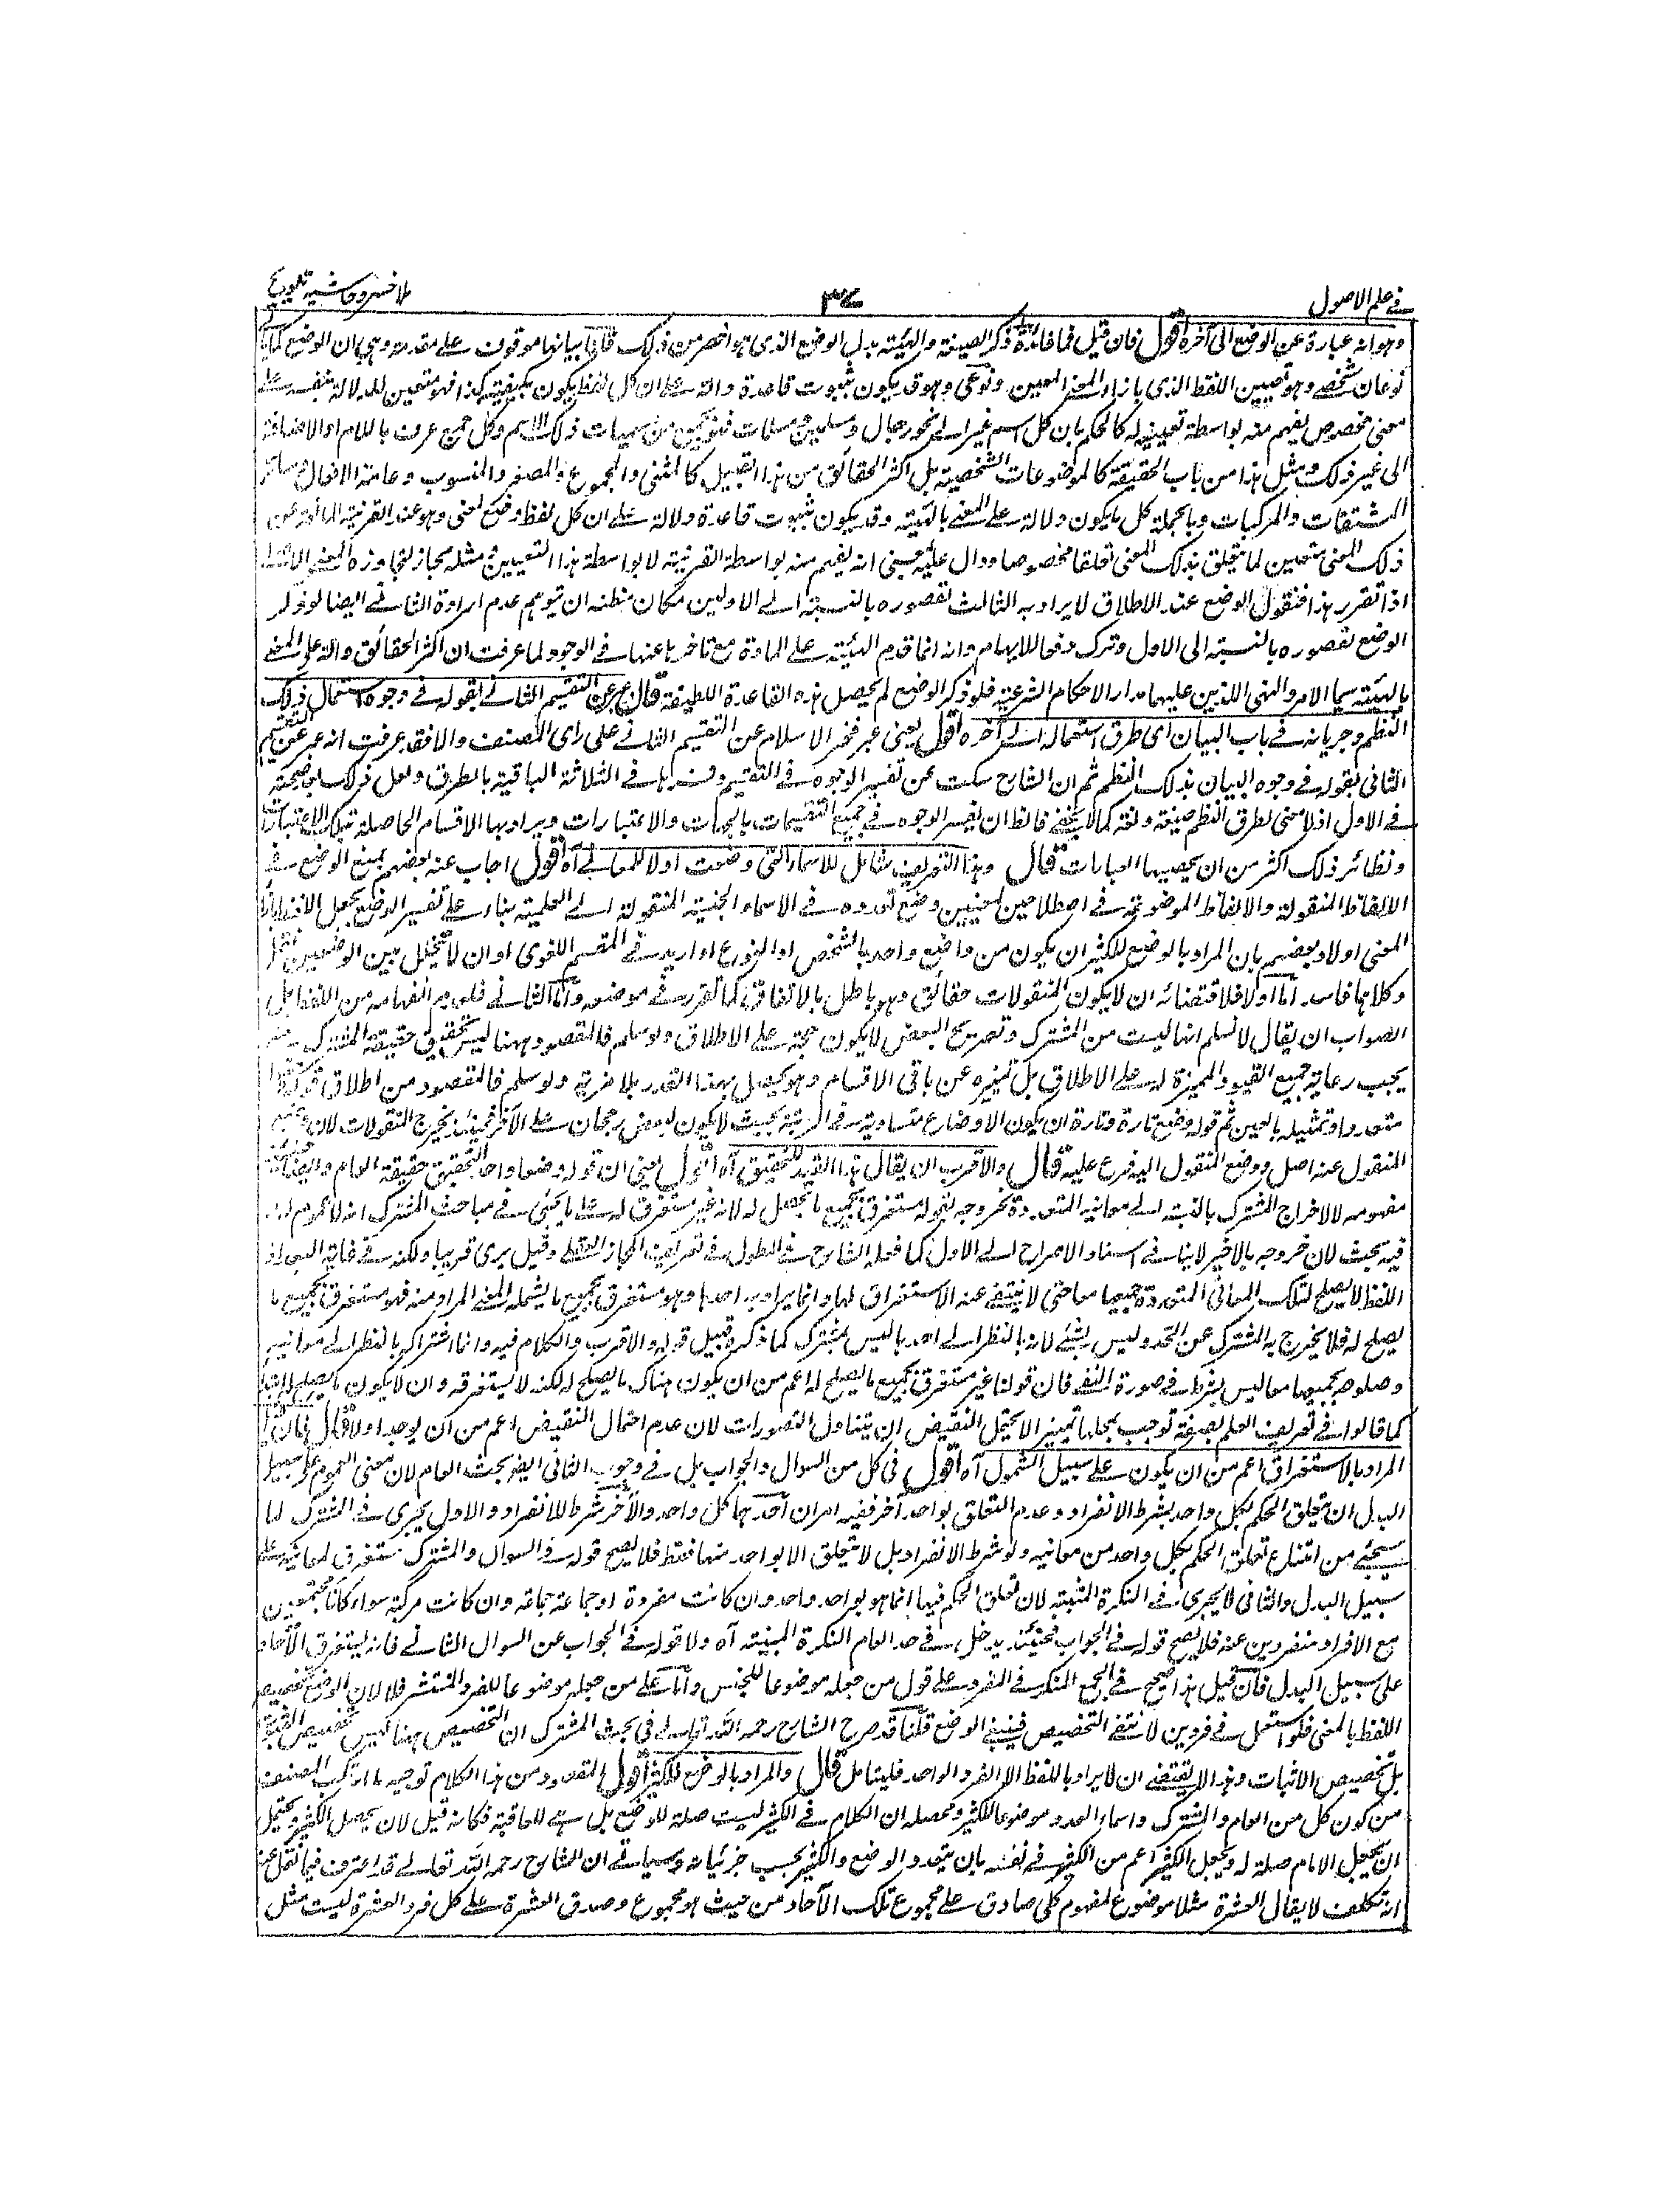 في علم الاصول
٣٧
ملا خسرو حاشية تلويح
وهو انه عبارة عن الوضع الى آخره اقول فان قيل فما فائدة ذكر الصيغة والهيئة بدل الوضع الذي هو اخصر من ذلك قلنا بيانها موقوف على مقدمة وهي ان الوضع
نوعان شخصي وهو تعيين اللفظ الذي بازاء المعنى المعين ونوعي وهو قد يكون بثبوت قاعدة دالة على ان كل لفظ يكون بكيفية كذا فهو متعين للدلالة بنفسه على
معنى مخصوص يفهم منه بواسطة تعيينه له كالحكم بان كل اسم غير الى نحو رجال ومسلمين ومسلمات فهو لجمع من مسميات ذلك الاسم وكل جمع عرف باللام او الاضافة
الى غير ذلك ومثل هذا من باب الحقيقة كالموضوعات الشخصية بل اكثر الحقائق من هذا القبيل كالمثنى والمجموع والمصغر والمنسوب وعامة الافعال وسائر
المشتقات والمركبات وبالجملة كل ما يكون دلالته على المعنى بالهيئة وقد يكون بثبوت قاعدة دالة على ان كل لفظ وضع لمعنى وهو عند القرينة المانعة عن
ذلك المعنى متعين لما يتعلق بذلك المعنى تعلقا مخصوصا ودال عليه بمعنى انه يفهم منه بواسطة القرينة لا بواسطة هذا التعيين مثله مجاز لتجاوزه المعنى
اذا تقرر هذا فنقول الوضع عند الاطلاق لا يراد به الثالث لقصوره بالنسبة الى الاولين مكان مظنة ان يتوهم عدم ارادة الثاني ايضا لو ذكر
الوضع لقصوره بالنسبة الى الاول وترك دفعا للايهام وانه انما قدم الهيئة على المادة مع تاخرها عنها في الوجود لما عرفت ان اكثر الحقائق دالة على المعنى
بالهيئة سيما الامر والنهي اللذين عليهما مدار الاحكام الشرعية فلو ذكر الوضع لم يحصل هذه القاعدة اللطيفة قال عبر عن التقسيم الثاني بقوله في وجوه استعمال ذلك
النظم وجريانه في باب البيان اى طرق استعماله الى آخره اقول يعني عبر فخر الاسلام عن التقسيم الثاني على راى المصنف والا فقد عرفت انه عبر عن التقسيم
الثاني بقوله في وجوه البيان بذلك النظم ثم ان الشارح سكت عن تفسير الوجوه في التقسيم وفسرها في الثلاثة الباقية بالطرق ولعل ذلك لعدم صحته
في الاول اذ لا معنى لطرق النظم صيغة ولغة كما لا يخفى فالظان يفسر الوجوه في جميع التقسيمات بالجهات والاعتبارات ويراد بها الاقسام الحاصلة بتلك الاعتبارات
ونظائر ذلك اكثر من ان يحصيها العبارات قال وهذا التعريف شامل للاسماء التي وضعت اولا للمعاني آه اقول اجاب عنه بعضهم بمنع الوضع في
الالفاظ المنقولة والالفاظ الموضوعة في اصطلاحين لمعنيين وضع تعدده في الاسماء الجنسية المنقولة الى العلمية بناء على تفسير الوضع بجعل اللفظ بازاء
المعنى اولا وبعضهم بان المراد بالوضع للكثير ان يكون من واضع واحد بالشخص او النوع او اريد في المقسم اللغوي او ان لا يتخلل بين الوضعين نقل
وكلاهما فاسد اما اولا فلاقتضائه ان لا يكون المنقولات حقائق وهو باطل بالاتفاق كما تقرر في موضعه واما الثاني فلعدم انفهامه من اللفظ بل
الصواب ان يقال لا نسلم انها ليست من المشترك وتصريح البعض لا يكون حجة على الاطلاق ولو سلم فالمقصود ههنا ليس تحقيق حقيقة المشترك
يجب رعاية جميع القيود المميزة له على الاطلاق بل تميزه عن باقي الاقسام وهو يحصل بهذا القدر بلا ضرية ولو سلم فالمقصود من اطلاق قوله
متعددا وتمثيله بالعين ثم قوله وضع تارة وتارة ان يكون الاوضاع متساوية في الرتبة بحيث لا يكون لبعض رجحان على الآخر فحينئذ يخرج المنقولات لان وضع
المنقول عنه اصل ووضع المنقول اليه فرع عليه قال والاقرب ان يقال هذا القيد للتحقيق آه اقول يعني ان قوله وضعا واحدا لتحقيق حقيقة العام وايضاح
مفهومه لا لاخراج المشترك بالنسبة الى معانيه المتعددة لخروجه بقوله مستغرق لجميع ما يصلح له لانه غير مستغرق له على ما يجئ في مباحث المشترك انه لا عموم له
فيه بحث لان خروجه بالاخير لا ينافي اسناد الاخراج الى الاول كما فعله الشارح في المطول في تعريف المجاز العقلي وقيل يرى قريبا ولكنه في غاية البعد اذ
اللفظ لا يصلح لتلك المعاني المتعددة جميعها معا حتى لا ينتفي عنه الاستغراق لها وانما يراد به احدها وهو مستغرق لجميع ما يشمله المعنى المراد منه فهو مستغرق لجميع ما
يصلح له فلا يخرج به المشترك عن الحد وليس بشئ لانه بالنظر الى احدها ليس بمشترك كما ذكره قبيل قوله والاقرب والكلام فيه وانما اشتراكه بالنظر الى معانيه
وصلوحه لجميعها معا ليس بشرط في صورة النفي فان قولنا غير مستغرق لجميع ما يصلح له اعم من ان يكون هناك ما يصلح له لكنه لا يستغرقه وان لا يكون ما يصلح له
كما قالوا في تعريف العلم بصفة توجب لمحلها تمييزا لا يحتمل النقيض ان يتناول التصورات لان عدم احتمال النقيض اعم من ان يوجد اولا قال فان قيل
المراد بالاستغراق اعم من ان يكون على سبيل الشمول آه اقول في كل من السوال والجواب بل في وجوب الثاني ايضا بحث العام لان معنى العموم على سبيل
البدل ان يتعلق الحكم بكل واحد بشرط الانفراد وعدم التعلق بواحد آخر ففيه امران احدهما كل واحد والآخر شرط الانفراد والاول يجري في المشترك لما
سيجئ من امتناع تعلق الحكم بكل واحد من معانيه ولو شرط الانفراد بل لا يتعلق الا بواحد منها فقط فلا يصح قوله في السوال والمشترك مستغرق لمعانيه على
سبيل البدل والثاني لا يجري في النكرة المثبتة لان تعلق الحكم فيها انما هو بواحد واحد وان كانت مفردة او جماعة جماعة وان كانت مركبة سواء كانا مجتمعين
مع الافراد منفردين عنه فلا يصح قوله في الجواب فحينئذ يدخل في حد العام النكرة المثبتة آه ولا قوله في الجواب عن السوال الثاني فانه يستغرق الآحاد
على سبيل البدل فان قيل هذا صحيح في الجمع المنكر في المفرد على قول من جعله موضوعا للجنس واما على من جعله موضوعا للفرد المنتشر فلا لان الوضع تخصيص
اللفظ بالمعنى فلو استعمل في فردين لانتفى التخصيص فينتفي الوضع قلنا قد صرح الشارح رحمه الله تعالى في بحث المشترك ان التخصيص ههنا ليس تخصيص
بل تخصيص الاثبات وهذا لا يقتضي ان لا يراد باللفظ الا الفرد الواحد فليتامل قال والمراد بالوضع للكثير اقول المقصود من هذا الكلام توجيه ما ارتكب المصنف
من كون كل من العام والمشترك واسماء العدد موضوعا للكثير ومحصله ان الكلام في الكثير ليست صلة للوضع بل هي للعاقبة فكانه قيل لان يحصل الكثير ويحتمل
ان يجعل اللام صلة له ويجعل الكثير اعم من الكثير في نفسه بان يتعدد الوضع والكثير بحسب جزئياته وسياتي ان الشارح رحمه الله تعالى قد اعترف فيما نقل عنه
انه تكلف لا يقال العشرة مثلا موضوع لمفهوم كلي صادق على مجموع تلك الآحاد من حيث هو مجموع وصدق العشرة على كل فرد العشرة ليست مثل